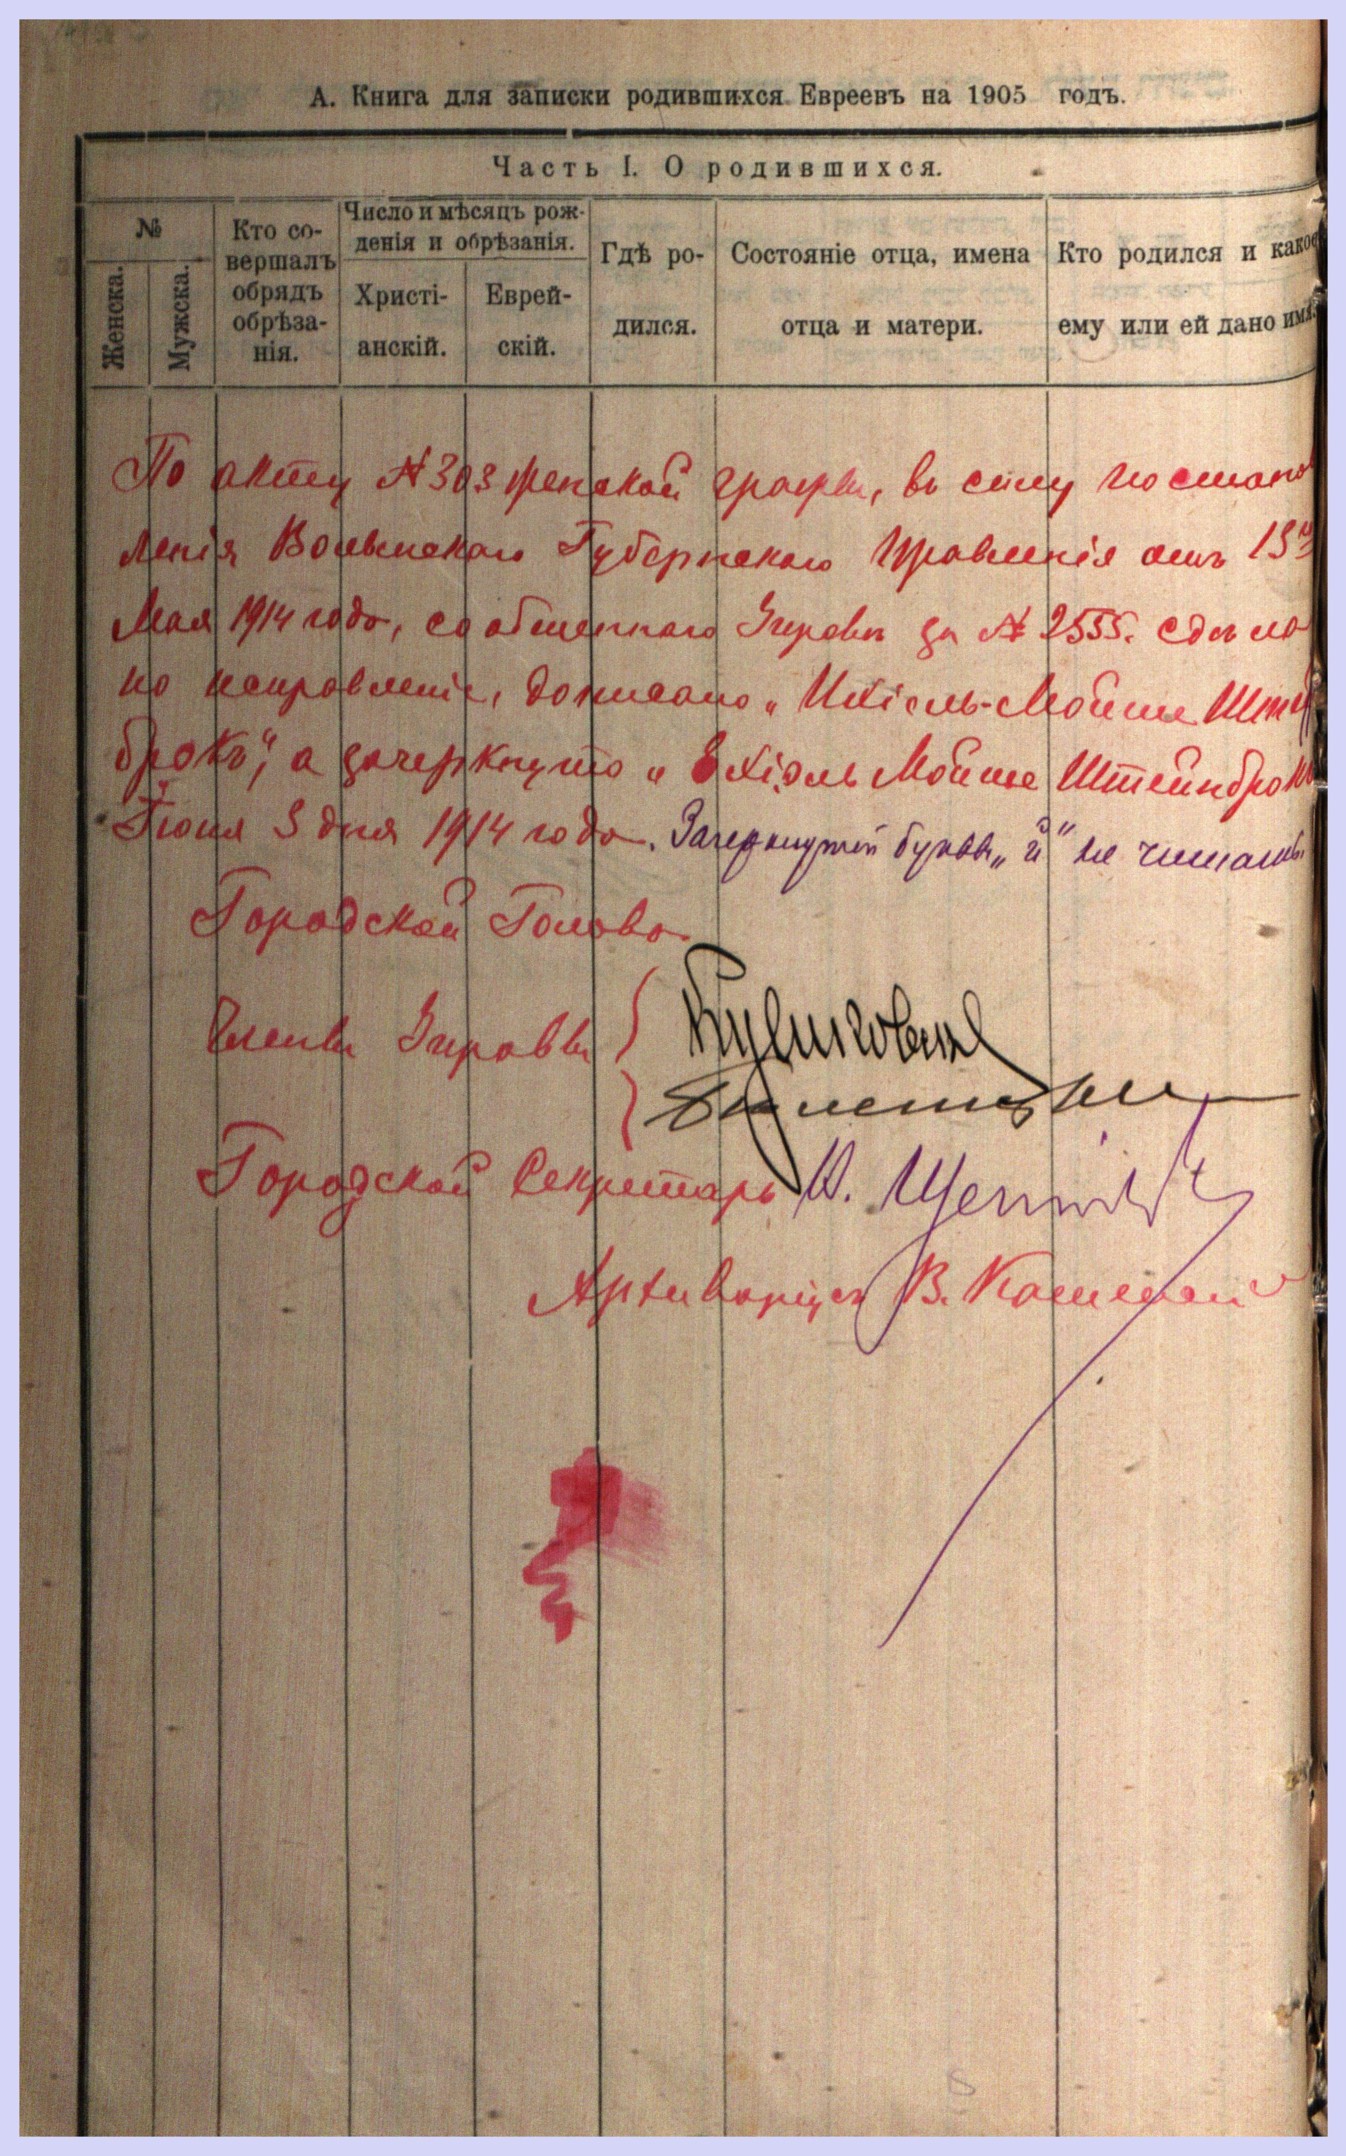 А. Книга для записки родившихся Евреевъ на 1905 годъ.
Часть I. О родившихся.
№
Женска.
Мужска.
Кто со-
вершалъ
обрядъ
обрѣза-
нія.
Число и мѣсяцъ рож-
денія и обрѣзанія.
Христі-
анскій.
Еврей-
скій.
Гдѣ ро-
дился.
Состояніе отца, имена
отца и матери.
Кто родился и какое
ему или ей дано имя.
По акту № 303 женской графы, въ силу постанов
ленія Волынскаго Губернскаго Правленія отъ 13го
Мая 1914 года, сообщеннаго Управѣ за № 2555. сдѣла
но исправленіе, дописано „Ихіель-Мойше
брокъ", а зачеркнуто „Ехіэль Мойше Штейнброкъ
Іюня 3 дня 1914 года. Зачеркнутой буквы „й" не читать.
Городской Голова
Члены Управы
Городской Секретарь
Архиваріусъ В.